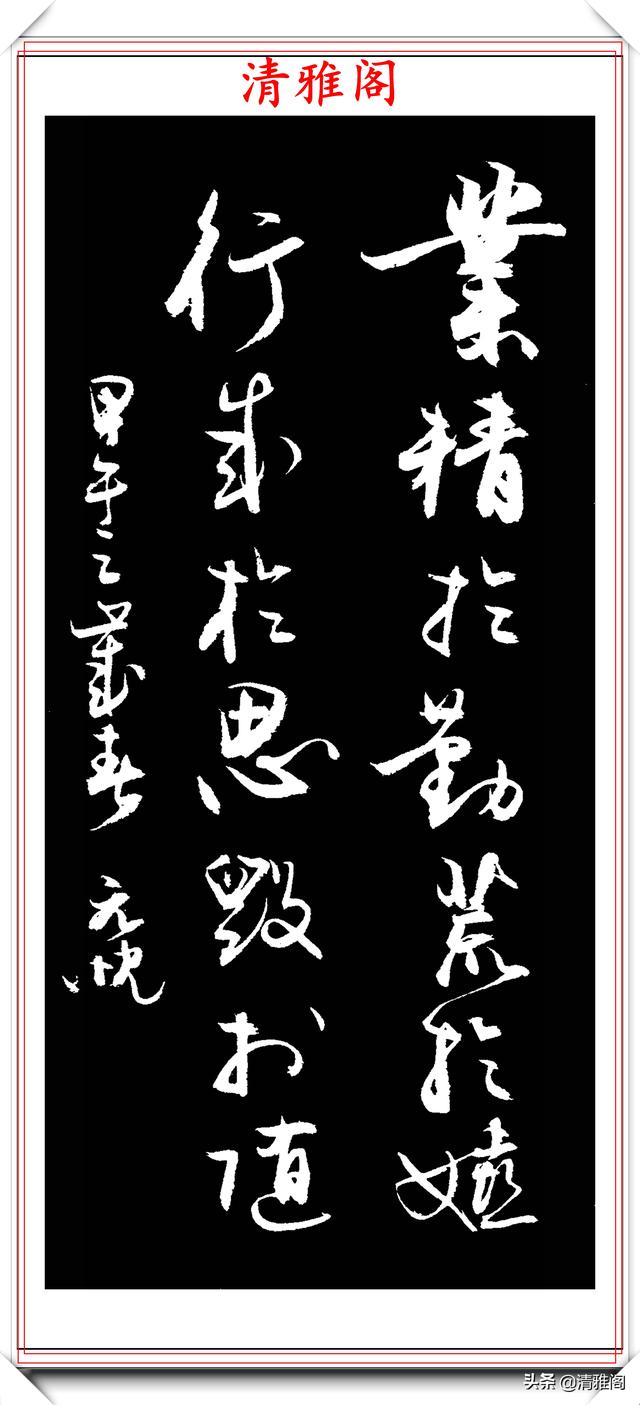 清雅阁
業精於勤荒於嬉
行成於思毀於随
甲午之歲春 元忱
头条 @清雅阁